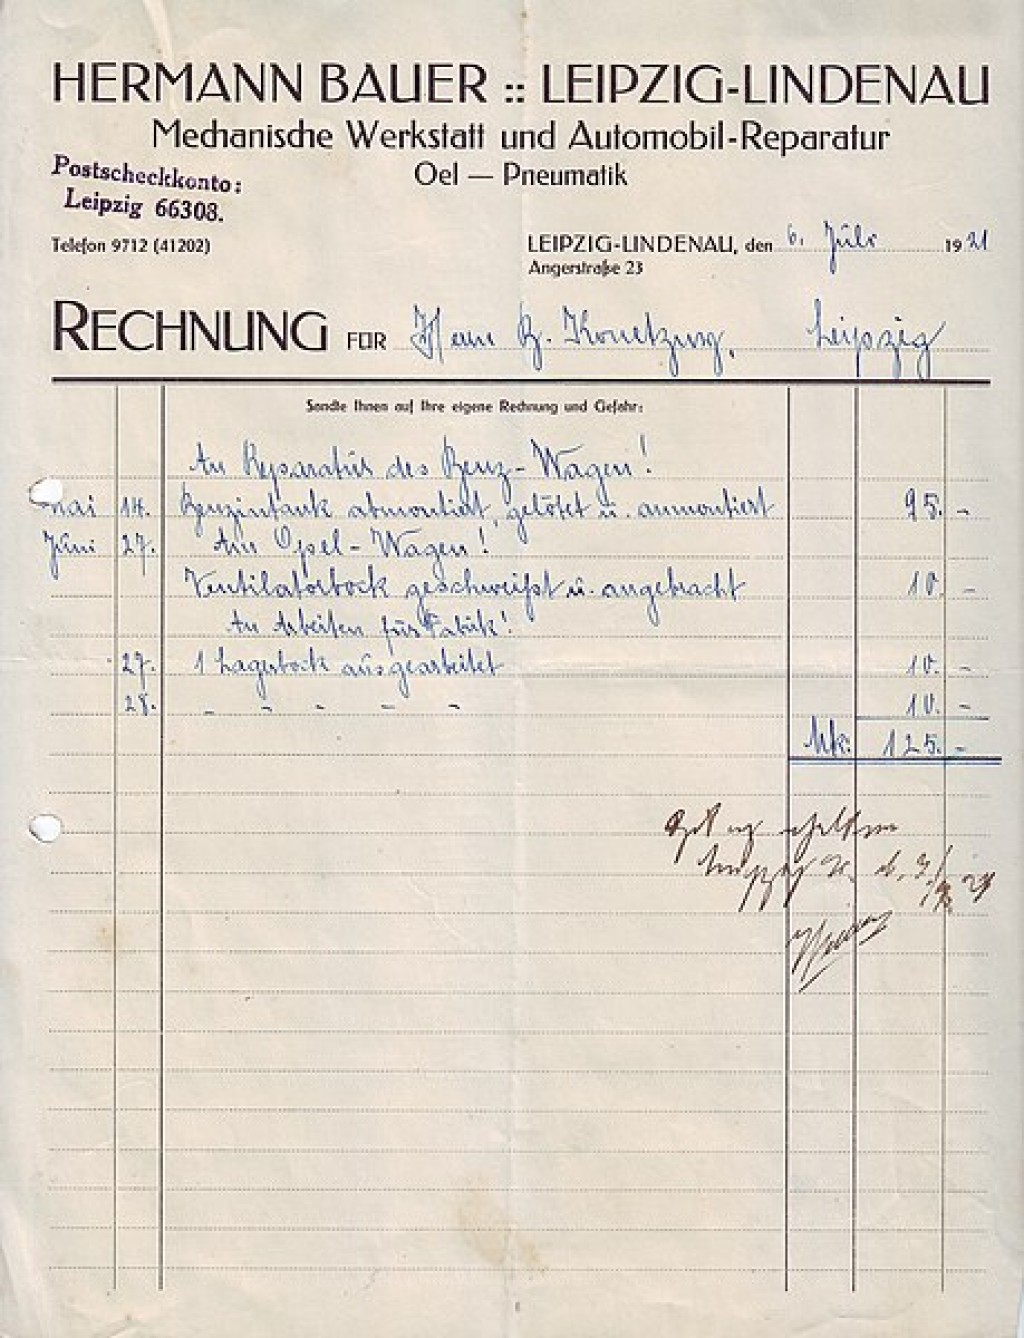 HERMANN BAUER :: LEIPZIG-LINDENAU
Mechanische Werkstatt und Automobil-Reparatur
Oel — Pneumatik
Postscheckkonto:
Leipzig 66308.
Telefon 9712 (41202)
LEIPZIG-LINDENAU, den 6. Juli 1921
Angerstraße 23
RECHNUNG FÜR Herrn Leipzig
Sandte Ihnen auf Ihre eigene Rechnung und Gefahr:
An Reparatur des Benz-Wagen!
Mai 14. Benzintank abmontiert, gelötet u. anmontiert 95. -
Juni 27. Am Opel-Wagen!
Ventilatorbock geschweißt u. angebracht 10. -
An Arbeiten für Fabrik!
27. 1 Lagerbock ausgearbeitet 10. -
28. - - - - - 10. -
Mk. 125. -